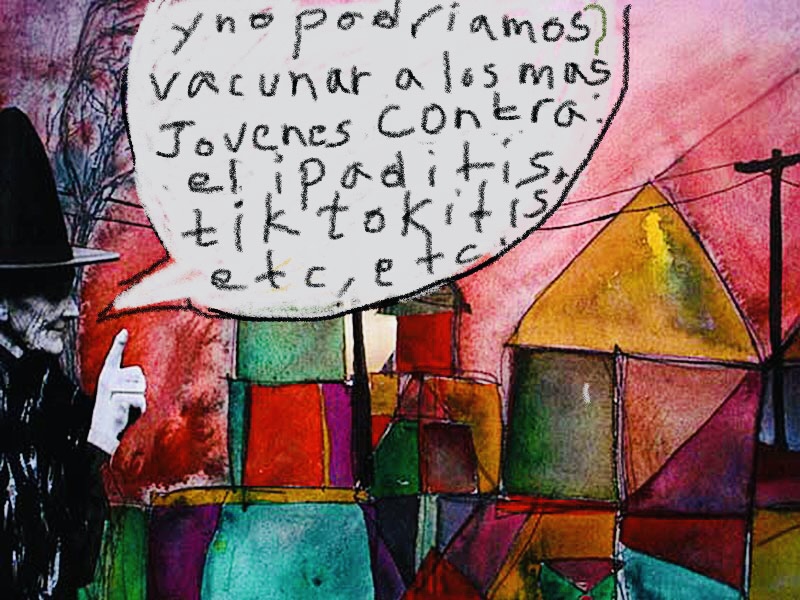 y no podríamos?
vacunar a los mas
Jovenes contra:
el ipaditis,
tik tokitis,
etc, etc.